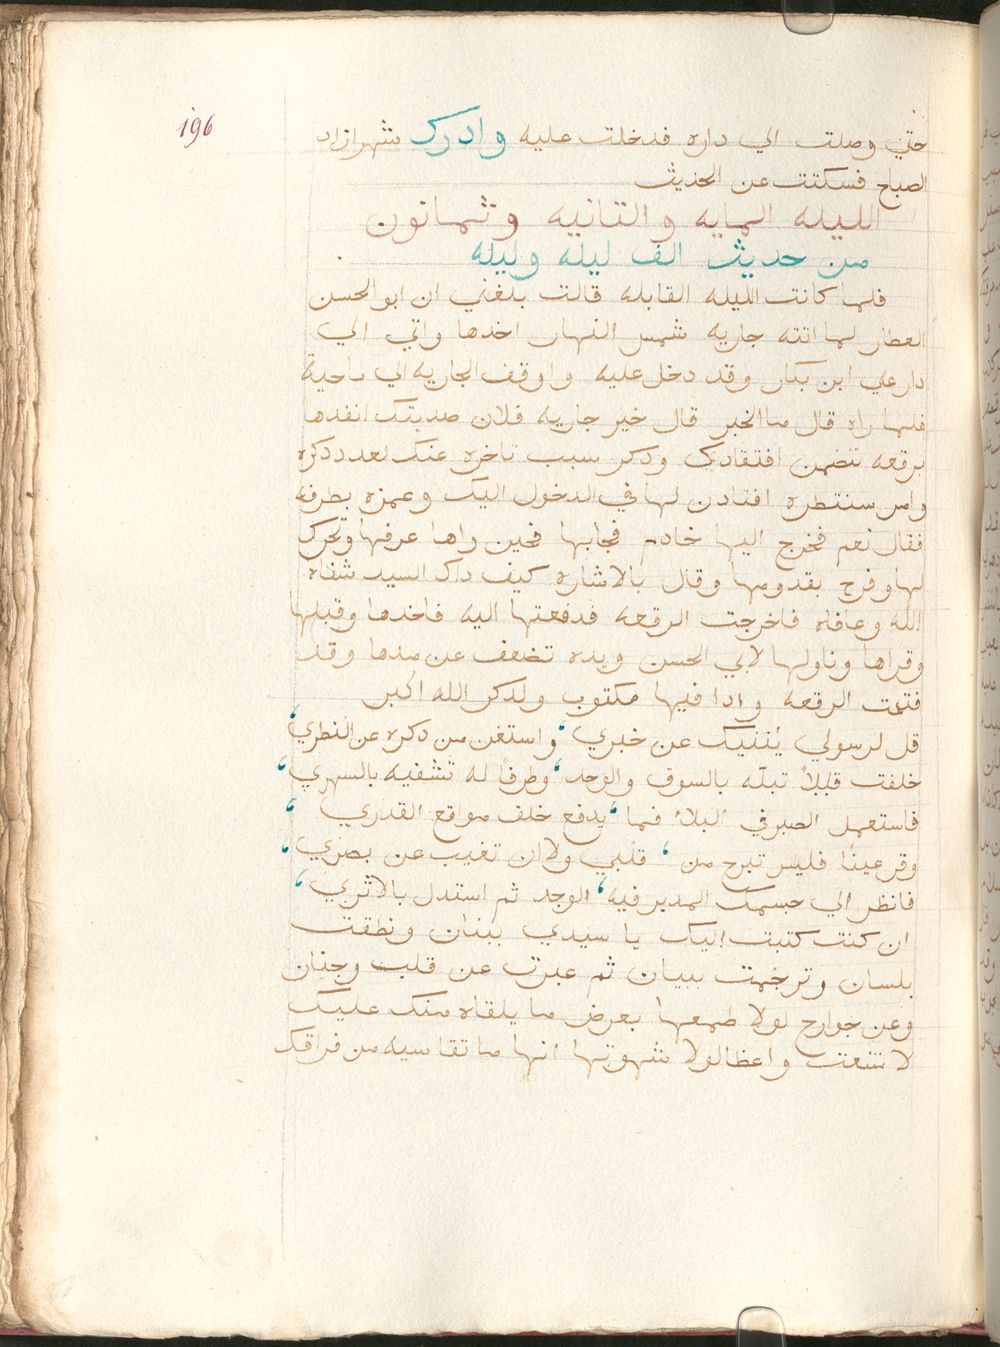 196
حتي وصلت الي داره فدخلت عليه وادرك شهرازاد
الصباح فسكتت عن الحديث
الليله المايه والتانيه وثمانون
من حديث الف ليله وليله
فلما كانت الليله القابله قالت بلغني ان ابو الحسن
العطار لما اتته جاريه شمس النهار اخدها واتي الي
دار علي ابن بكار وقد دخل عليه واوقف الجاريه الي ناحية
فلما راه قال ما الخبر قال خير جاريه فلان صديقك انفدها
برقعه تتضمن افتقادك ودكر سبب تاخره عنك لعدد دكره
وامر سنتطره افتادن لها في الدخول اليك وعمزه بطرفه
فقال نعم فخرج اليها خادم فجابها فحين راها عرفها وتحرك
لها وفرح بقدومها وقال بالاشاره كيف داك السيد شفاه
الله وعافاه فاخرجت الرقعه فدفعتها اليه فاخدها وقبلها
وقراها وناولها لابي الحسن ويده تضعف عن مدها وقد
فتحت الرقعه وادا فيها مكتوب ولدكر الله اكبر
قل لرسولي ينئيك عن خبري، واستغن من دكره عن النطري،
خلفت قلبلاً تبلّه بالسوق والوجد، وطرفاً له تشفيه بالسهري،
فاستعمل الصبر في البلاء فما، يدفع خلف مواقع القدري،
وقر عيناً فليس تبرح من، قلبي ولا ان تغيب عن بصري،
فانظر الي جسمك المدبر فيه، الوجد ثم استدل بالاثري،
ان كنت كتبت اليك يا سيدي ببنان ونطقت
بلسان وترجمت ببيان ثم عبرت عن قلب وجنان
وعن جوارح لولا طمعها بعرض ما يلقاه منك عليك
لا تتبعت واعظا لولا شهوتها انها ما تقاسيه من فراقك